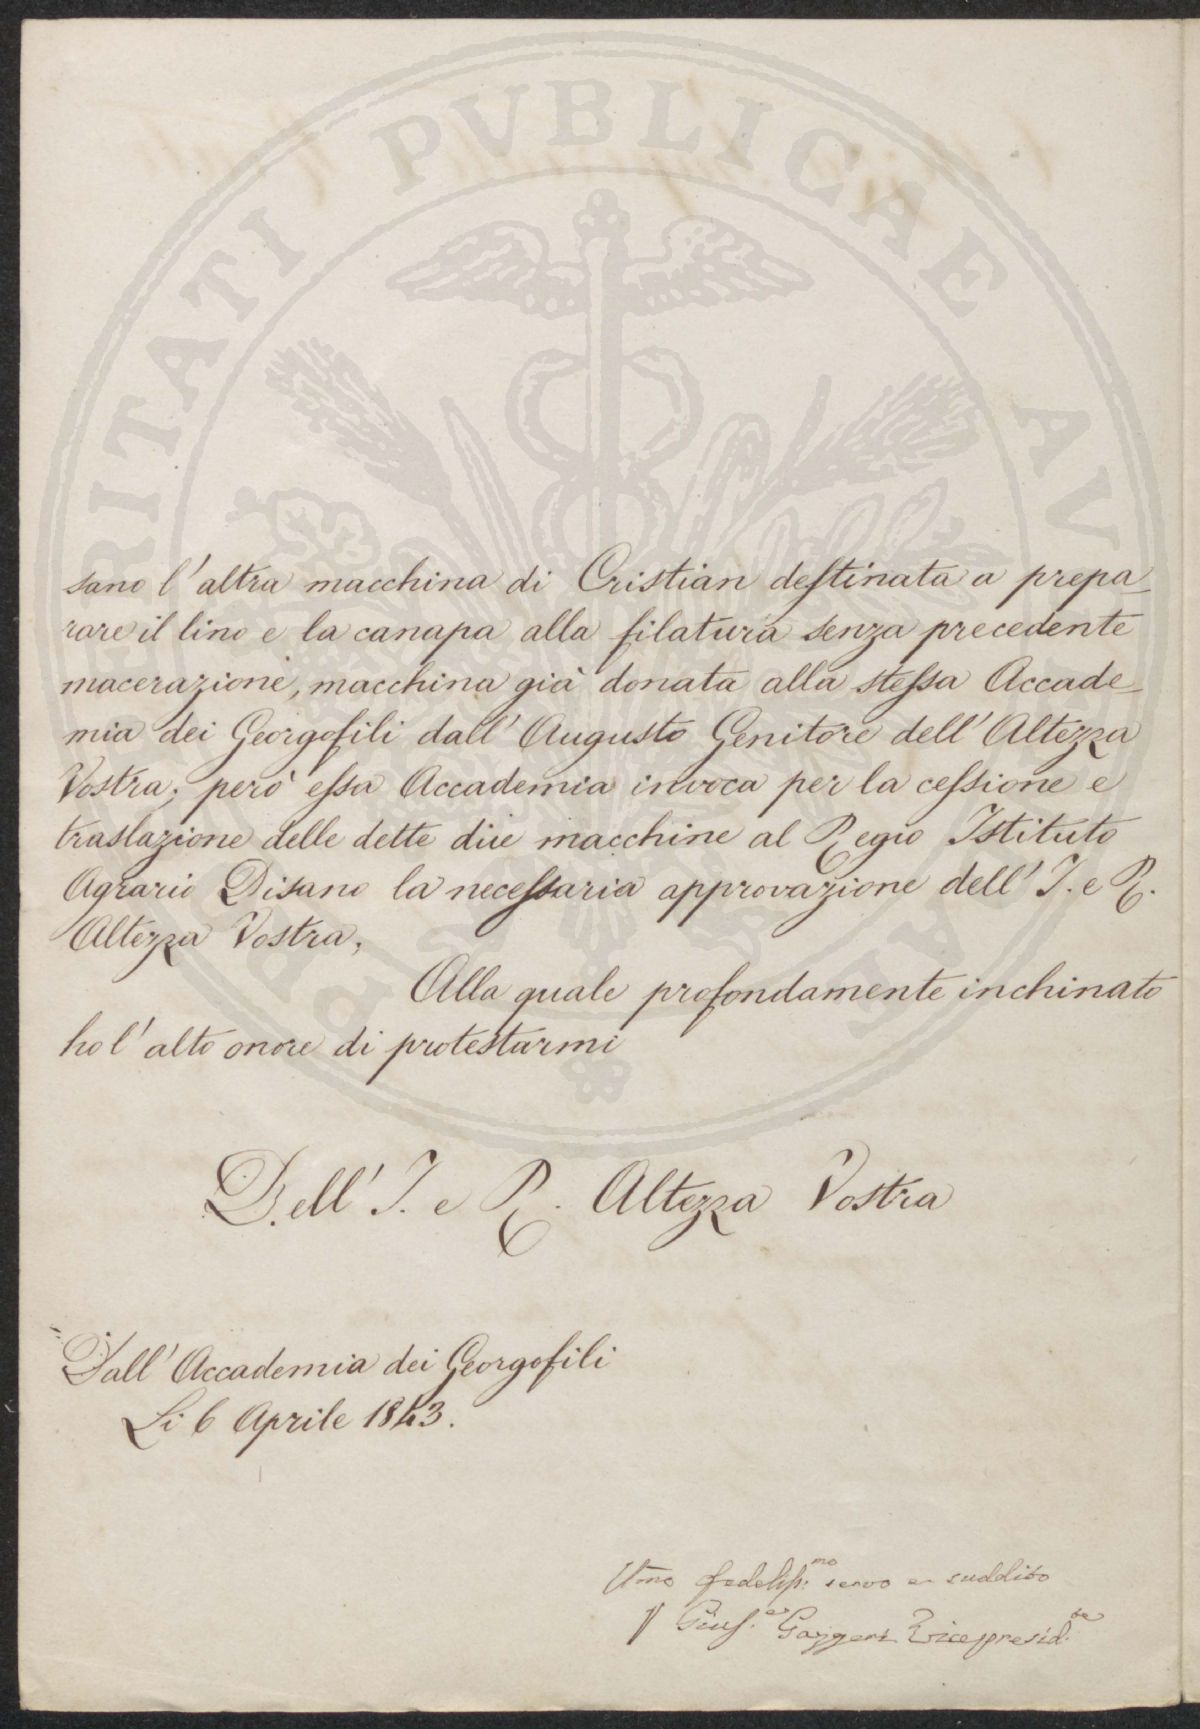 PROSPERITATI PVBLICAE AVGENDAE
sano l'altra macchina di Cristian destinata a prepa_
rare il lino e la canapa alla filatura senza precedente
macerazione, macchina già donata alla stessa Accade_
mia dei Georgofili dall'Augusto Genitore dell'Altezza
Vostra; però essa Accademia invoca per la cessione e
traslazione delle dette due macchine al Regio Istituto
Agrario Pisano la necessaria approvazione dell'I. e R.
Altezza Vostra,
Alla quale profondamente inchinato
ho l'alto onore di protestarmi
Dell'I. e R. Altezza Vostra
Dall'Accademia dei Georgofili
Li 6 Aprile 1843.
Umo fedeliss:mo servo e suddito
Gius.e Gazzeri Vicepresid.te